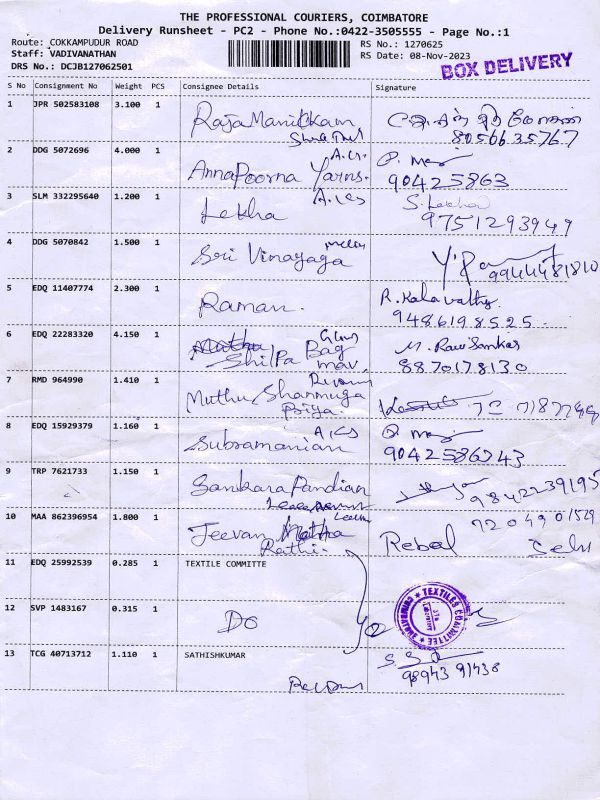 THE PROFESSIONAL COURIERS, COIMBATORE
Delivery Runsheet - PC2 - Phone No.:0422-3505555 - Page No.:1
Route: COKKAMPUDUR ROAD
Staff: VADIVANATHAN
DRS No.: DCJB127062501
RS No.: 1270625
RS Date: 08-Nov-2023
BOX DELIVERY
S No Consignment No Weight PCS Consignee Details Signature
1 JPR 502583108 3.100 1 Raja Manikkam
8056635767
2 DDG 5072696 4.000 1 AnnaPoorna Yarns.
90425863
3 SLM 332295640 1.200 1 Lekha S. Lekha
9751293949
4 DDG 5070842 1.500 1 Sri Vinayaga
9944481810
5 EDQ 11407774 2.300 1 Raman. R. Kalavathy
9486198525
6 EDQ 22283320 4.150 1 Shilpa Bag M. Ravi Sankar
8870178130
7 RMD 964990 1.410 1 Muthu Shanmuga
Priya.
8 EDQ 15929379 1.160 1 Subramanian
9042586243
9 TRP 7621733 1.150 1 Sankara Pandian 9842239195
10 MAA 862396954 1.800 1 Jeevan
Rathi. Rebal Selvi
7204901529
11 EDQ 25992539 0.285 1 TEXTILE COMMITTE
12 SVP 1483167 0.315 1 Do
TEXTILES COMMITTEE
13 TCG 40713712 1.110 1 SATHISHKUMAR
98943 91438